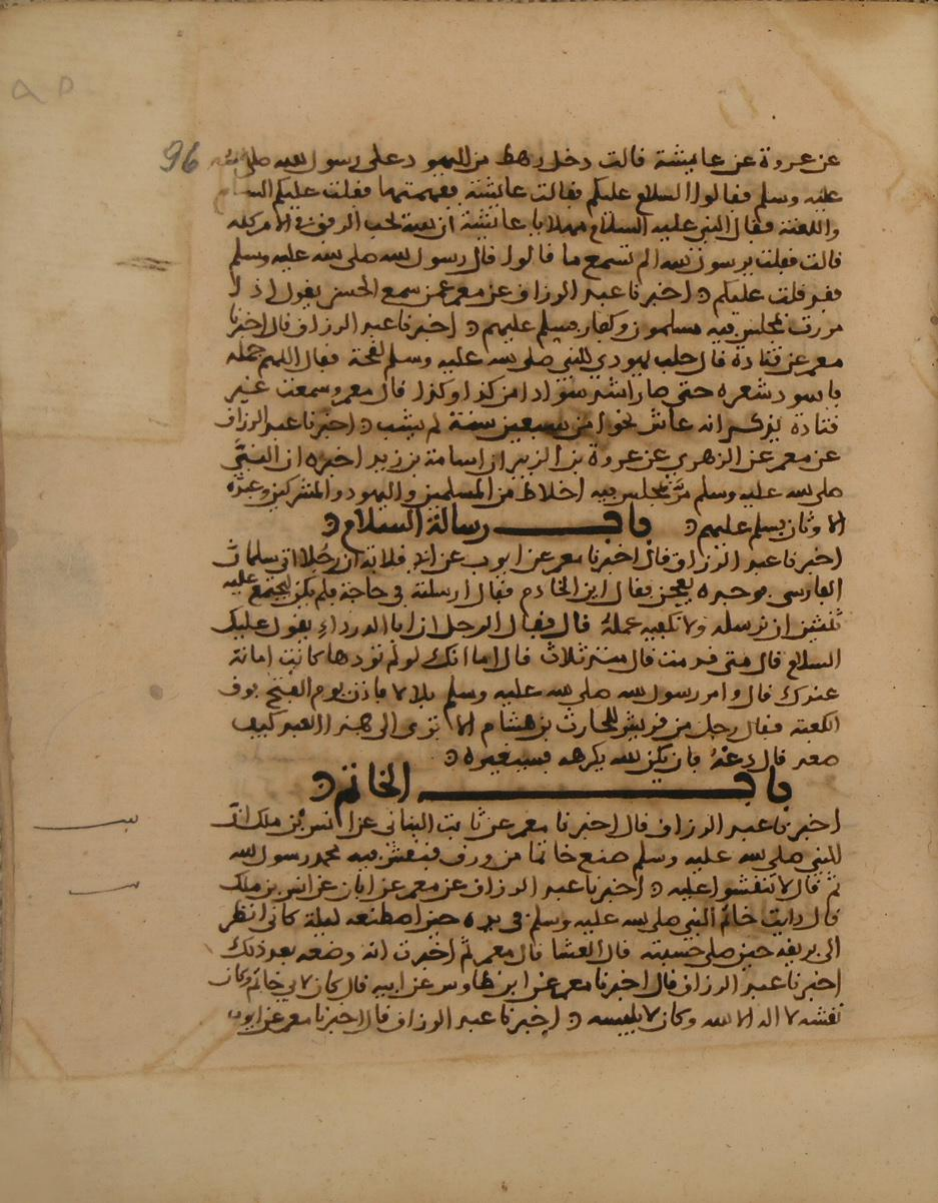 عن عروة عن عايشة قالت دخل رهط من اليهود على رسول الله صلى الله 96
عليه وسلم فقالوا السلام عليكم فقالت عايشة ففهمتها فقلت عليكم السام
واللعنة فقال النبي عليه السلام مهلا يا عايشة ان الله يحب الرفق في الامر كله
قالت فقلت يرسول الله الم تسمع ما قالوا قال رسول الله صلى الله عليه وسلم
فقد قلت عليكم اخبرنا عبد الرزاق عن معمر عمن سمع الحسن يقول اذا
مررت بمجلس فيه مسلمون وكفار فسلم عليهم اخبرنا عبد الرزاق قال اخبرنا
معمر عن قتادة قال حلب يهودي للنبي صلى الله عليه وسلم نعجة فقال اللهم جمله
فاسود شعره حتى صار اشد سوادا من كذا وكذا قال معمر وسمعت غير
قتادة يذكر انه عاش نحوا من تسعين سنة لم يشب اخبرنا عبد الرزاق
عن معمر عن الزهري عن عروة بن الزبير ان اسامة بن زيد اخبره ان النبي
صلى الله عليه وسلم مر بمجلس فيه اخلاط من المسلمين واليهود والمشركين وعبدة
الاوثان فسلم عليهم باب رسالة السلام
اخبرنا عبد الرزاق قال اخبرنا معمر عن ايوب عن ابي قلابة ان رجلا اتى سلمان
الفارسي فوجده يعجن فقال اين الخادم فقال ارسلته في حاجة فلم يكن ليجتمع عليه
ثنتين ان نرسله ولا نكفيه عمله قال فقال الرجل ان ابا الدرداء يقول عليك
السلام قال متى قدمت قال منذ ثلاث قال اما انك لو لم تؤدها كانت امانة
عندك قال وامر رسول الله صلى الله عليه وسلم بلالا فاذن يوم الفتح فوق
الكعبة فقال رجل من قريش للحارث بن هشام الا ترى الى هذا العبد كيف
صعد قال دعه فان يكن الله يكرهه فسيغيره
باب الخاتم
اخبرنا عبد الرزاق قال اخبرنا معمر عن ثابت البناني عن انس بن ملك ان
النبي صلى الله عليه وسلم صنع خاتما من ورق فنقش فيه محمد رسول الله
ثم قال لا تنقشوا عليه اخبرنا عبد الرزاق عن معمر عن ابان عن انس بن ملك
قال رايت خاتم النبي صلى الله عليه وسلم في يده حين اصطنعه ليلة كاني انظر
الى بريقه حين صلى حسبته قال العشا قال معمر ثم اخبرت انه وضعه بعد ذلك
اخبرنا عبد الرزاق قال اخبرنا معمر عن ابن طاوس عن ابيه قال كان لابي خاتم وكان
نقشه لا اله الا الله وكان لا يلبسه اخبرنا عبد الرزاق قال اخبرنا معمر عن ايوب